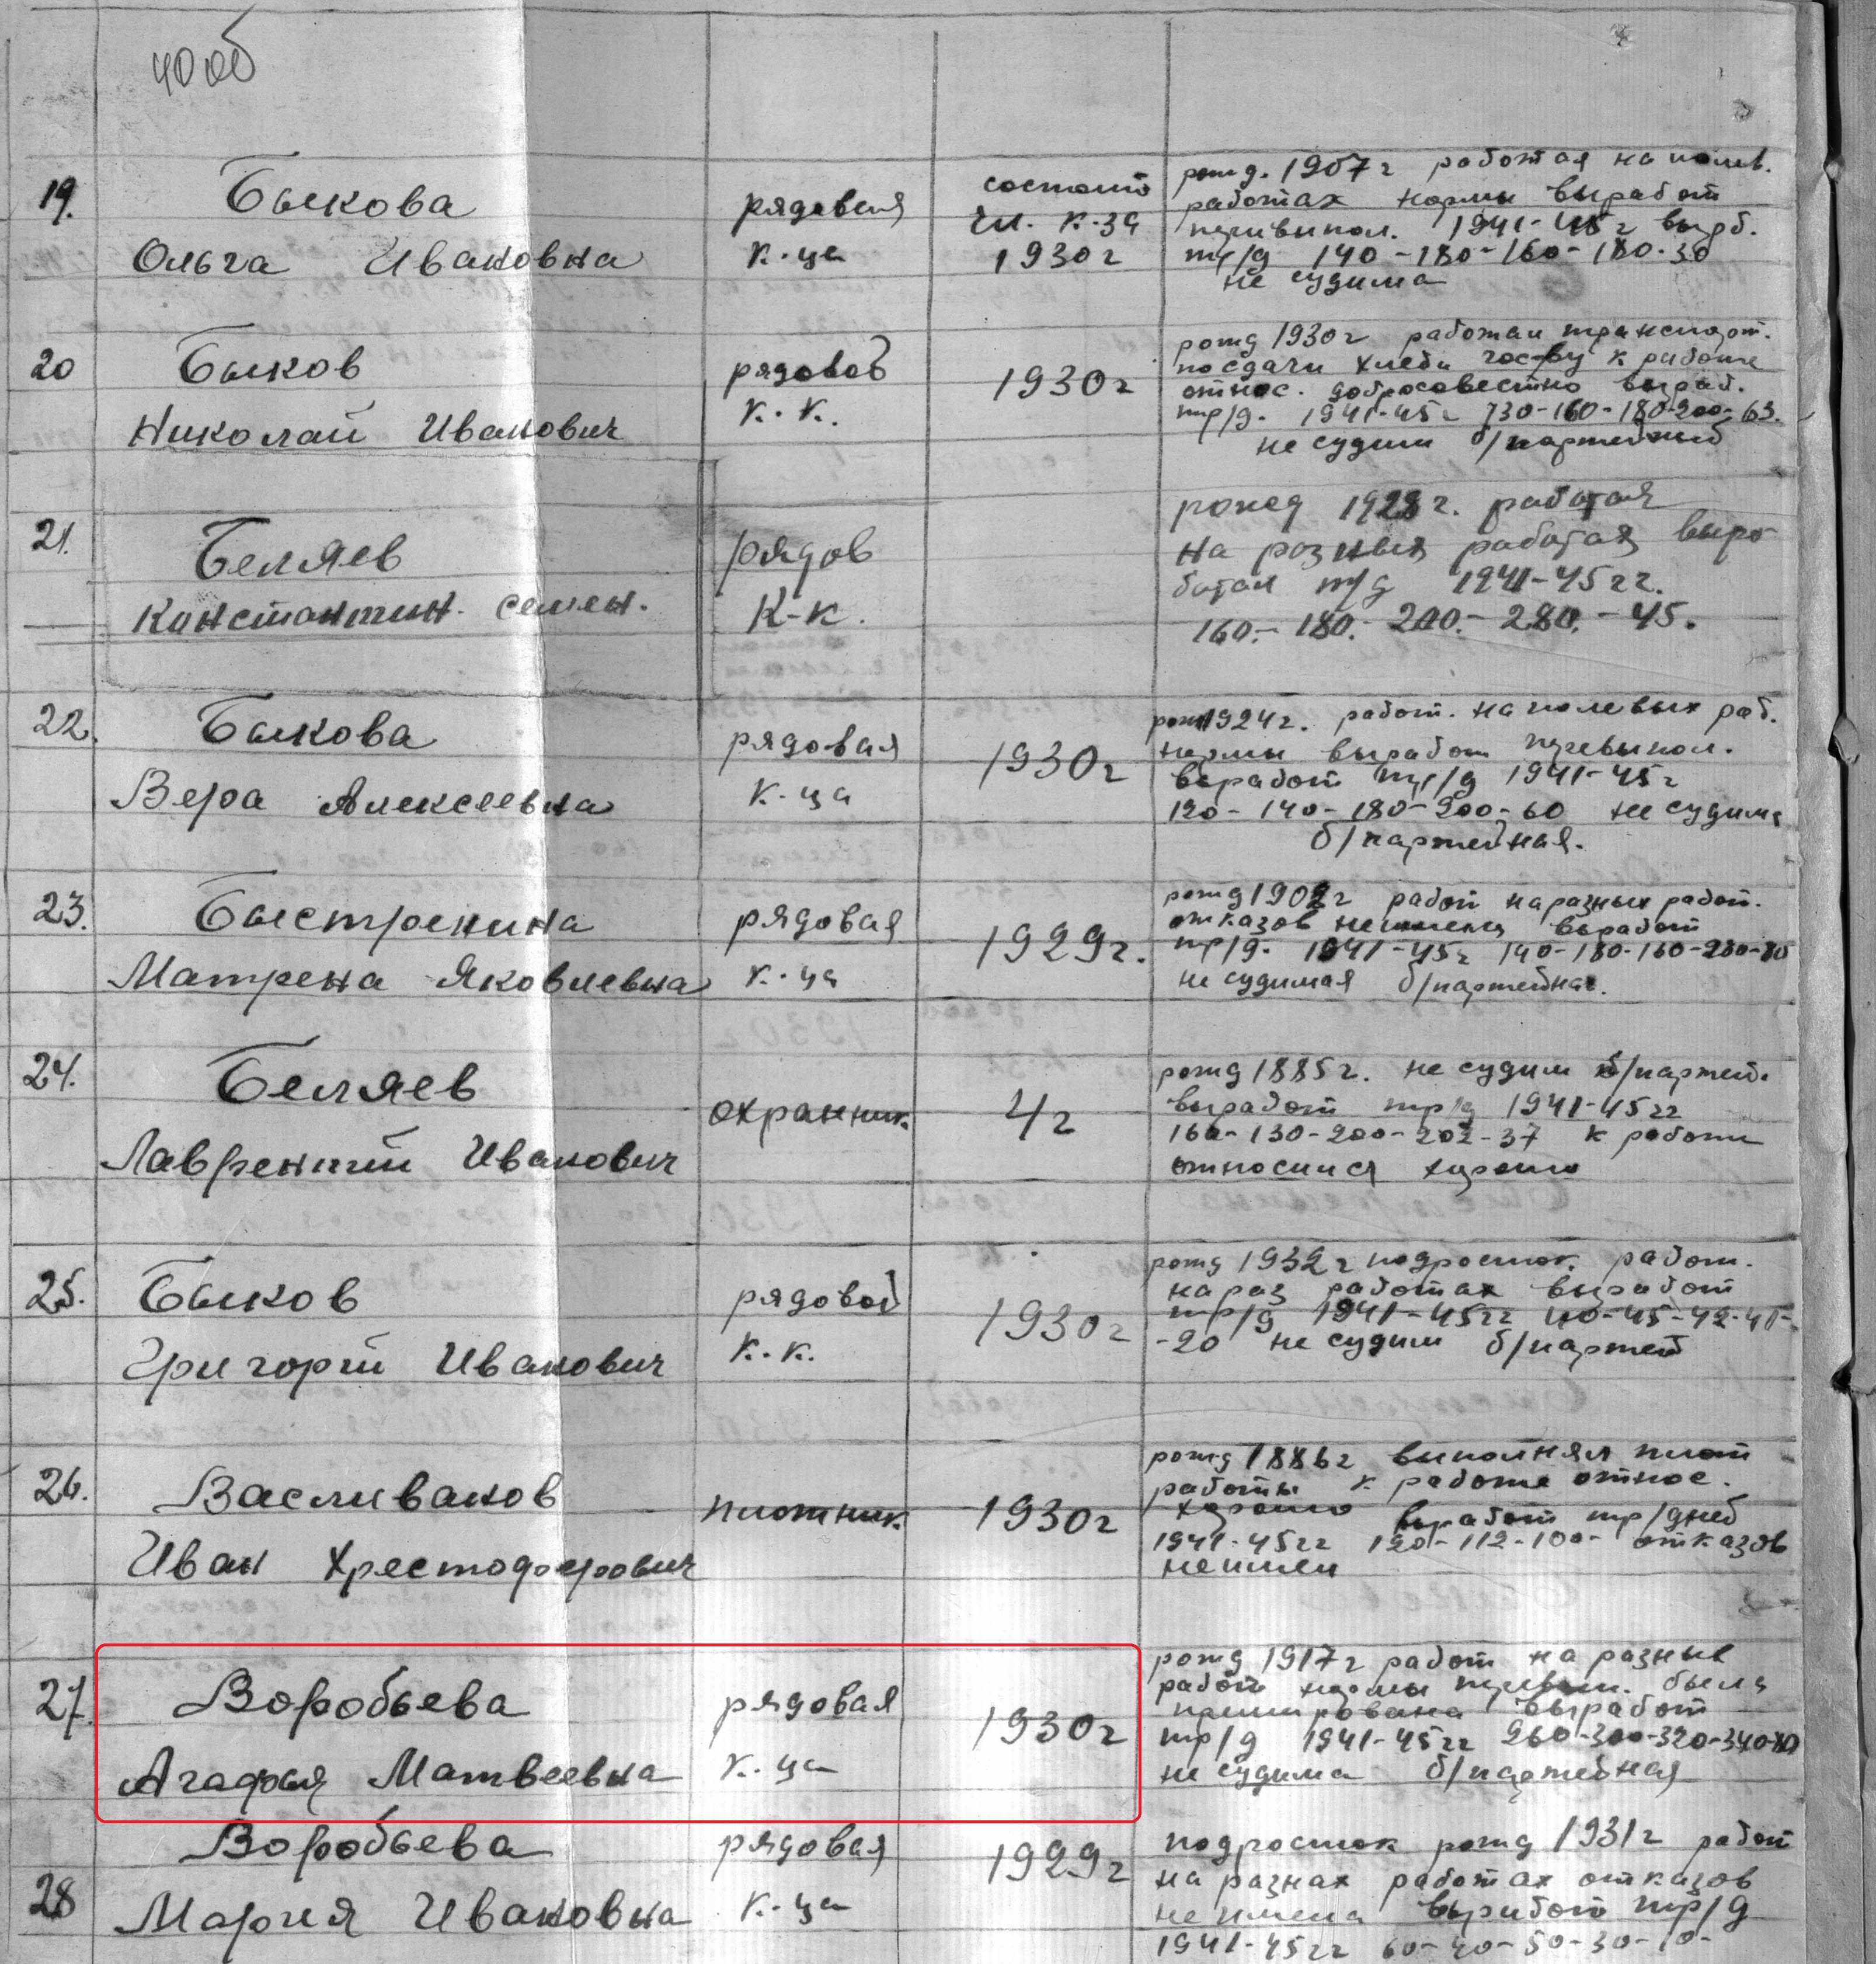 40 об
19.
Быкова
Ольга Ивановна
рядовая
к-ца
состоит
чл. к-за
1930 г
рожд. 1907 г работая на полев.
работах нормы выработ
перевыпол. 1941-45 г выраб.
тр/д 140-180-160-180-30
не судима
20
Быков
Николай Иванович
рядовой
к.-к.
1930 г
рожд 1930 г работал транспорт.
по сдачи хлеба гос-ву к работе
относ. добросовестно выраб.
тр/д. 1941-45 г 130-160-180-200-63.
не судим б/партейный
21.
Беляев
Константин. семен.
рядов
К-к.
рожед 1928 г. работая
на розных работах выро
ботал т/д 1941-45 гг.
160.- 180.- 200.- 280.- 45.
22.
Быкова
Вера Алексеевна
рядовая
к-ца
1930 г
рожд 1924 г. работ. на полевых раб.
нормы выработ перевыпол.
выработ тр/д 1941-45 г
120-140-180-200-60 не судима
б/партейная.
23.
Быстренина
Матрена Яковлевна
рядовая
к-ца
1929 г.
рожд 1902 г работ на разных работ.
отказов не имела выработ
тр/д. 1941-45 г 140-180-160-200-80
не судимая б/партейная.
24.
Беляев
Лаврентий Иванович
охранник
4 г
рожд 1885 г. не судим б/партей.
выработ тр/д 1941-45 гг
160-130-200-202-37 к работе
относился хорошо
25.
Быков
Григорий Иванович
рядовой
к.-к.
1930 г
рожд 1932 г подросток. работ.
на раз работах выработ
тр/д 1941-45 гг 40-45-42-41-
-20 не судим б/партей
26.
Васливанов
Иван Хрестофорович
плотник
1930 г
рожд 1886 г выполнял плот
работы к работе относ.
хорошо выработ тр/дней
1941-45 гг 120-112-100- отказов
не имел
27.
Воробьева
Агафья Матвеевна
рядовая
к-ца
1930 г
рожд 1917 г работ на разных
работ нормы перевып. была
премирована выработ
тр/д 1941-45 гг 260-300-320-340-80
не судима б/партейная
28
Воробьева
Мария Ивановна
рядовая
к-ца
1929 г
подросток рожд 1931 г работ
на разнах работах отказов
не имела выработ тр/д
1941-45 гг 60-40-50-30-10-